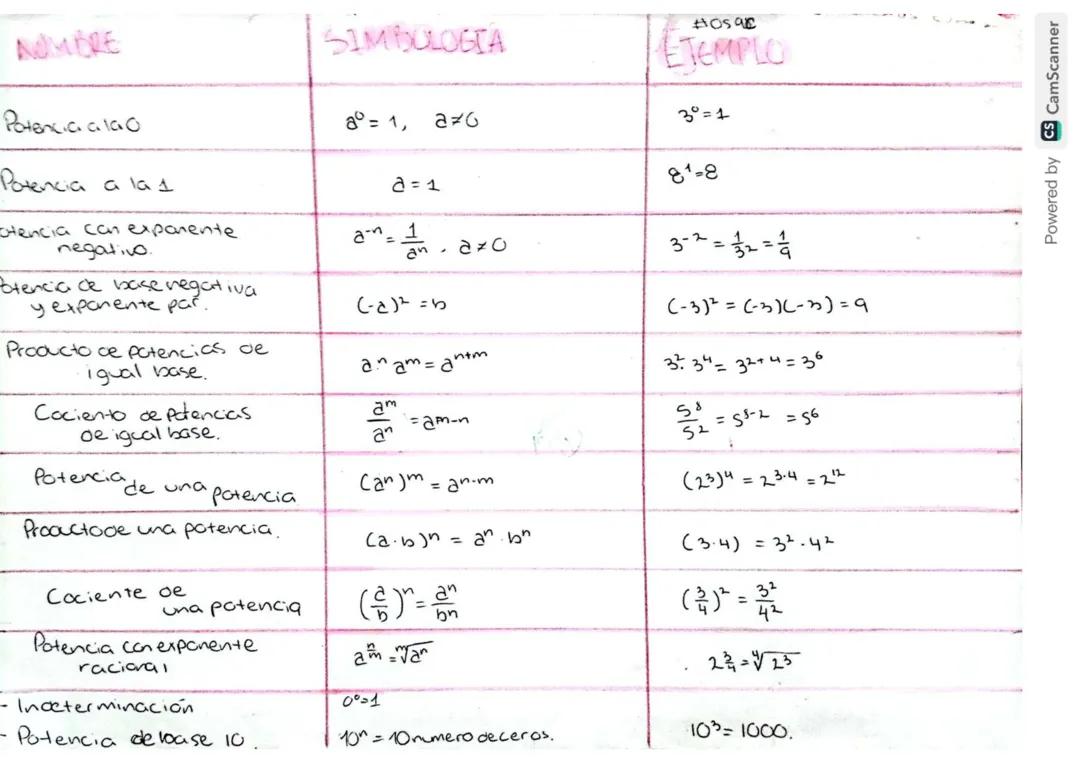 NOMBRE
SIMBOLOGÍA
EJEMPLO
Potencia a la 0
a⁰ = 1, a≠0
3⁰ = 1
Potencia a la 1
a = 1
8¹=8
otencia con exponente
negativo.
a⁻ⁿ = 1/aⁿ , a≠0
3⁻² = 1/3² = 1/9
otencia de base negativa
y exponente par.
(-a)² = b
(-3)² = (-3)(-3) = 9
Producto de potencias de
igual base.
aⁿ aᵐ = aⁿ⁺ᵐ
3². 3⁴ = 3²⁺⁴ = 3⁶
Cociento de potencias
de igual base.
aᵐ/aⁿ = aᵐ⁻ⁿ
5⁸/5² = 5⁸⁻² = 5⁶
Potencia de una potencia
(aⁿ)ᵐ = aⁿ·ᵐ
(2³)⁴ = 2³·⁴ = 2¹²
Producto de una potencia.
(a·b)ⁿ = aⁿ · bⁿ
(3·4) = 3² · 4²
Cociente de
una potencia
(a/b)ⁿ = aⁿ/bⁿ
(3/4)² = 3²/4²
Potencia con exponente
racional
a^(n/m) = ᵐ√aⁿ
2^(3/4) = ⁴√2³
- Indeterminación
0⁰=1
- Potencia de base 10.
10ⁿ = 10 numero de ceros.
10³ = 1000.
Powered by CS CamScanner